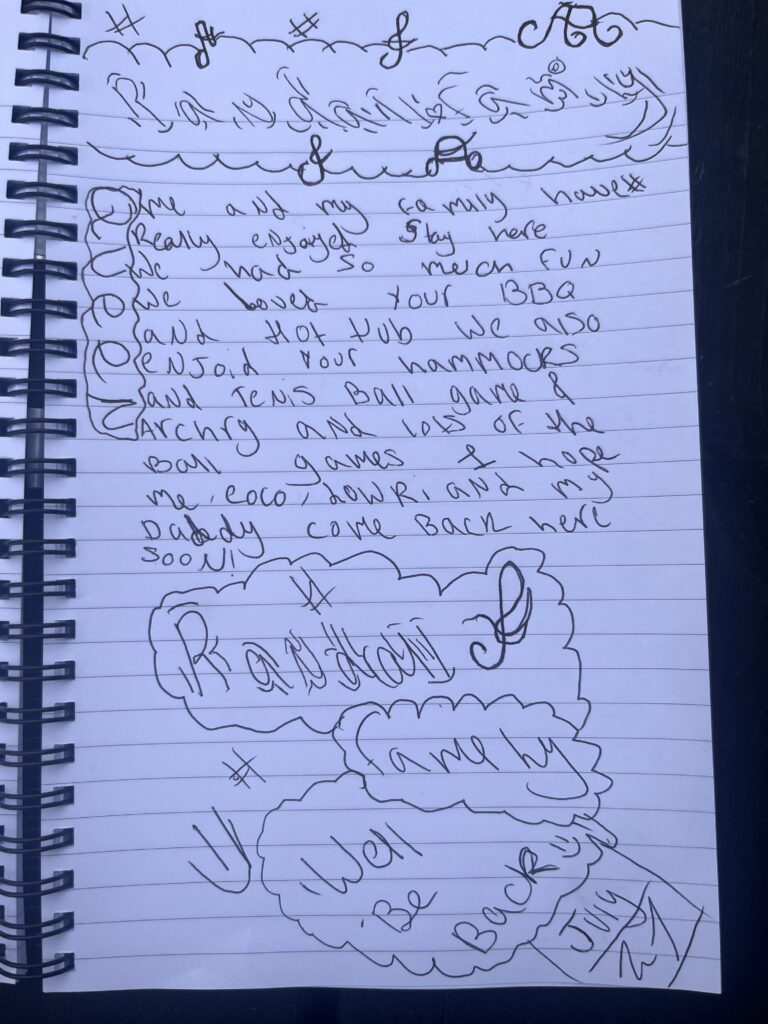 Randall Family
me and my famuly have
Really enjoyed Stay here
We had so much fun
We Loved Your BBQ
and Hot tub We also
enjoid Your hammocks
and Tenis Ball game &
Archry and lots of the
Ball games I hope
me, coco, LOWRi, and my
Daddy come Back here
SOON!
Randall
Family
Well
Be
Back
July
21